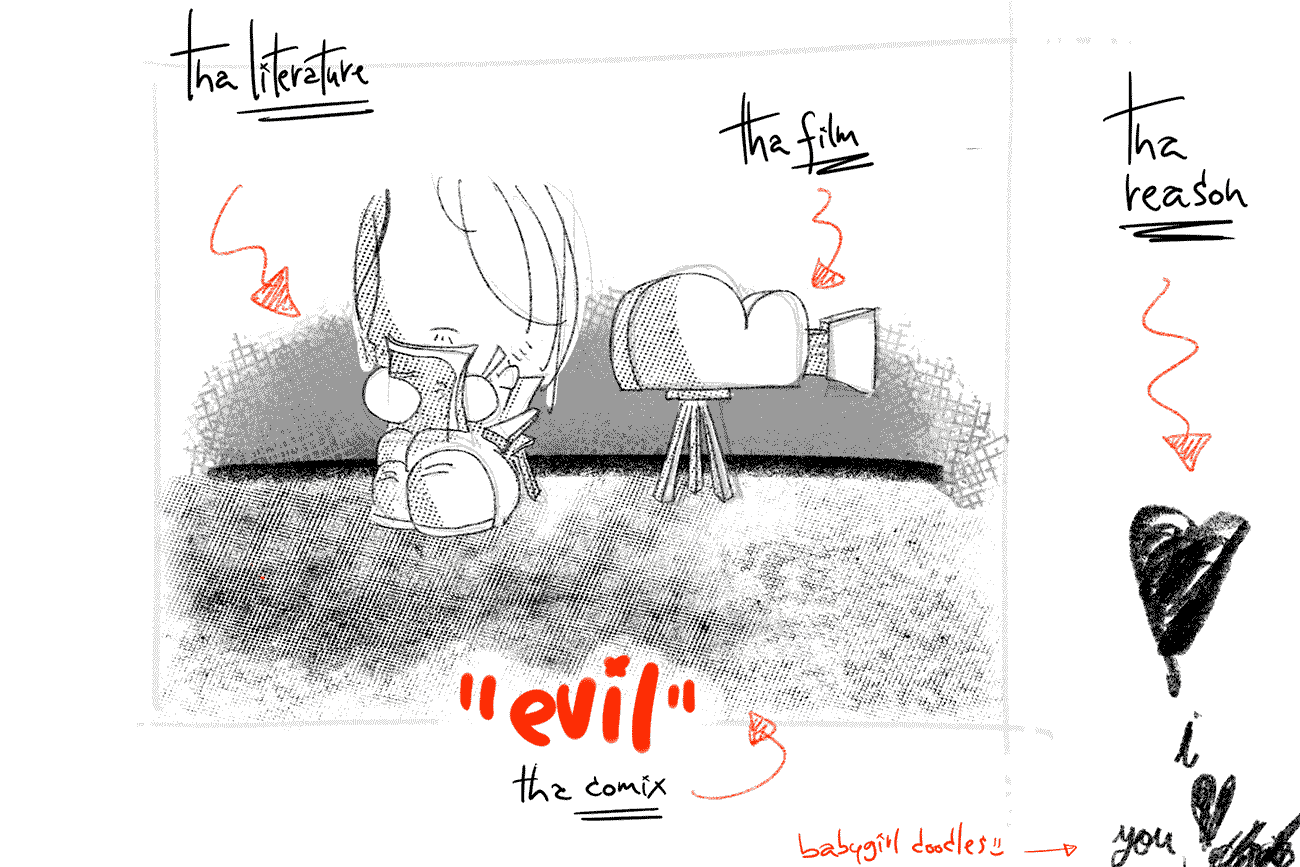 tha literature
tha film
tha
reason
"evil"
tha comix
i
you
babygirl doodles